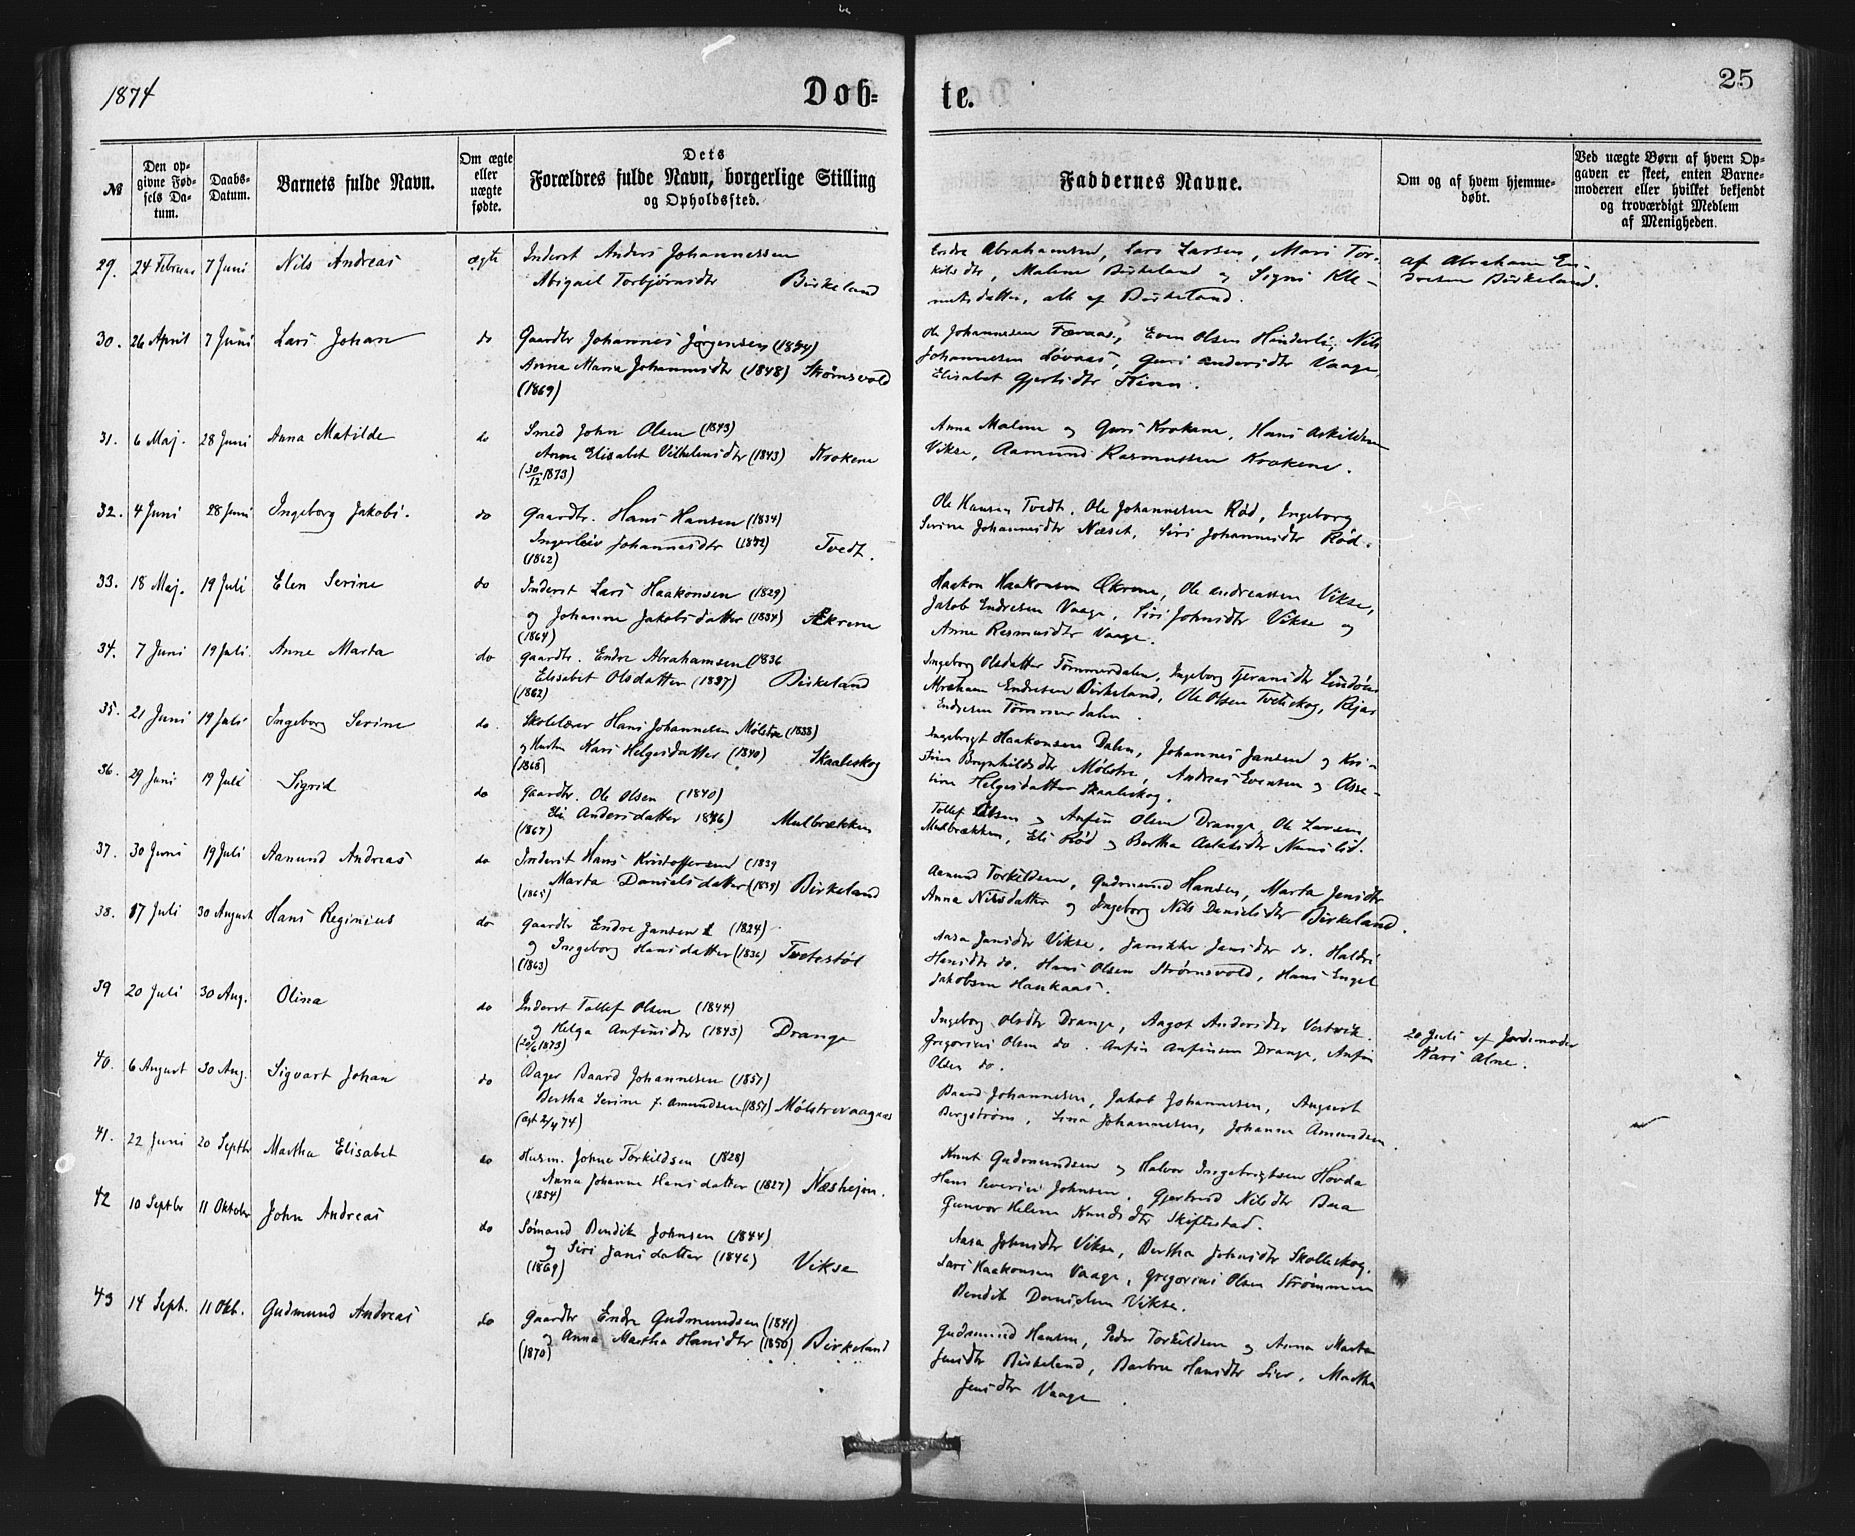 1874
Døb-
te.
25
№
Den op-
givne Fød-
sels Da-
tum.
Daabs-
Datum.
Barnets fulde Navn.
Om ægte
eller
uægte
fødte.
Dets
Forældres fulde Navn, borgerlige Stilling
og Opholdssted.
Faddernes Navne.
Om og af hvem hjemme-
døbt.
Ved uægte Børn af hvem Op-
gaven er skeet, enten Barne-
moderen eller hvilket bekjendt
og troværdigt Medlem
af Menigheden.
29. 24 Februar 7 Juni Nils Andreas ægte Inderst Anders Johannessen
Abigael Torbjørnsdtr Birkeland
Endre Abrahamsen, Lars Larsen, Mari Tor-
kilsdtr, Malene Birkeland og Signi Kle-
metsdatter, alle af Birkeland.
af Abraham En-
dresen Birkeland.
30. 26 April 7 Juni Lars Johan do Gaardbr Johannes Jørgensen (1834)
Anna Maria Johannesdtr (1848) Strømsvold
(1869)
Ole Johannesen Færaas, Even Olsen Hinderli, Nils
Johannesen Løvaas, Guri Andersdtr Vaage,
Elisabet Gjertsdtr
31. 6 Maj. 28 Juni Anna Matilde do Smed John Olsen (1843)
Anne Elisabet Vilhelmsdtr (1843) Krokene
(30/12 1873)
Anna Malene og Guri Krokene, Hans Askildsen
Vikse, Aamund Rasmussen Krokene.
32. 4 Juni 28 Juni Ingeborg Jakobi. do Gaardbr. Hans Hansen (1834)
Ingerleiv Johannesdtr (1842) Tvedt.
(1862)
Ole Hansen Tvedt, Ole Johannesen Rød, Ingeborg
Serine Johannesdtr Næset, Siri Johannesdtr Rød.
33. 18 Maj. 19 Juli Elen Serine do Inderst Lars Haakonsen (1829)
og Johanne Jakobsdatter (1834) Økrene
(1864)
Haakon Haakonsen Økrene, Ole Andreassen Vikse,
Jakob Endresen Vaage, Siri Johnsdtr Vikse og
Anne Rasmusdtr Vaage.
34. 7 Juni 19 Juli. Anne Marta do Gaardbr. Endre Abrahamsen (1836
Elisabet Olsdatter (1837) Birkeland
(1862)
Ingeborg Olsdatter Tømmerdalen, Ingeborg Lindøen
Abraham Endresen Birkeland, Ole Olsen Tveitaskog,
Endresen Tømmerdalen.
35. 21 Juni 19 Juli Ingeborg Serine do. Skolelærer Hans Johannesen Mølstre (1838)
og Hustru Kari Helgesdatter (1840) Skaaleskog
(1868)
Ingebrigt Haakonsen Dalen, Johannes Jansen og Kri-
stine Brynhildsdtr Mølstre, Andreas Evensen og Asse-
line Helgesdatter Skaaleskog.
36. 29 Juni 19 Juli Sigrid do Gaardbr. Ole Olsen (1840)
Eli Andersdatter 1846) Mulbrækken
(1867)
Tollef Olsen og Anfin Olsen Drange, Ole Larsen
Mulbrækken, Eli Rød og Bertha Namslid.
37. 30 Juni 19 Juli Aamund Andreas do Inderst Hans Kristoffersen (1839
Marta Danielsdatter (1839) Birkeland
(1865)
Aamund Torkildsen, Gudmund Hansen, Marta Jensdtr
Anna Nilsdatter og Ingeborg Nils Danielsdtr Birkeland.
38. 17 Juli 30 August Hans Reginius do Gaardbr Endre Jansen (1824)
og Ingeborg Hansdatter (1836) Tvetestøl
(1863)
Aasa Jansdtr Vikse, Jansdtr do. Haldri
Hansdtr do. Hans Olsen Strømsvold, Hans Engel
Jakobsen Haukaas.
39 20 Juli 30 Aug. Olina do Inderst Tollef Olsen (1844)
og Helga Anfinsdtr (1843) Drange
(29/6 1873)
Ingeborg Olsdtr Drange, Aagot Andersdtr Vestvik.
Gregorius Olsen do. Anfin Anfinsen Drange, Anfin
Olsen do.
20 Juli af Jordemoder
Kari Alne.
40. 6 August 30 Aug. Sigvart Johan do Bager Baard Johannesen (1851)
Bertha Serine f. Amundsen (1851) Mølstrevaagen
(ægt 2/4 74)
Baard Johannesen, Jakob Johannesen, August
Bergstrøm, Lina Johannesen, Johanne Amundsen
41. 22 Juni 20 Septbr Martha Elisabet do Husm. Johne Torkildsen (1828)
Anna Johanne Hansdatter (1827) Næshejen.
(1854)
Knut Gudmundsen og Halvor Ingebrigtsen Hovda
Hans Severin Johnsen. Gjertrud Nilsdtr Bua
Gunvor Helene Knudsdtr Skiftestad.
42 10 Septbr 11 Oktober John Andreas do Sømand Bendik Johnsen (1844)
og Siri Jansdatter (1846) Vikse
(1869)
Aasa Johnsdtr Vikse, Bertha Johnsdtr Skolleskog.
Lars Haakonsen Vaage, Gregorius Olsen Strømmen
Bendik Danielsen Vikse.
43 14 Sept. 11 Okb. Gudmund Andreas do Gaardbr Endre Gudmundsen (1841)
og Anna Martha Hansdtr (1850) Birkeland
(1870)
Gudmund Hansen, Peder Torkildsen og Anna Marta
Jensdtr Birkeland, Barbra Hansdtr Lier, Martha
Jensdtr Vaage